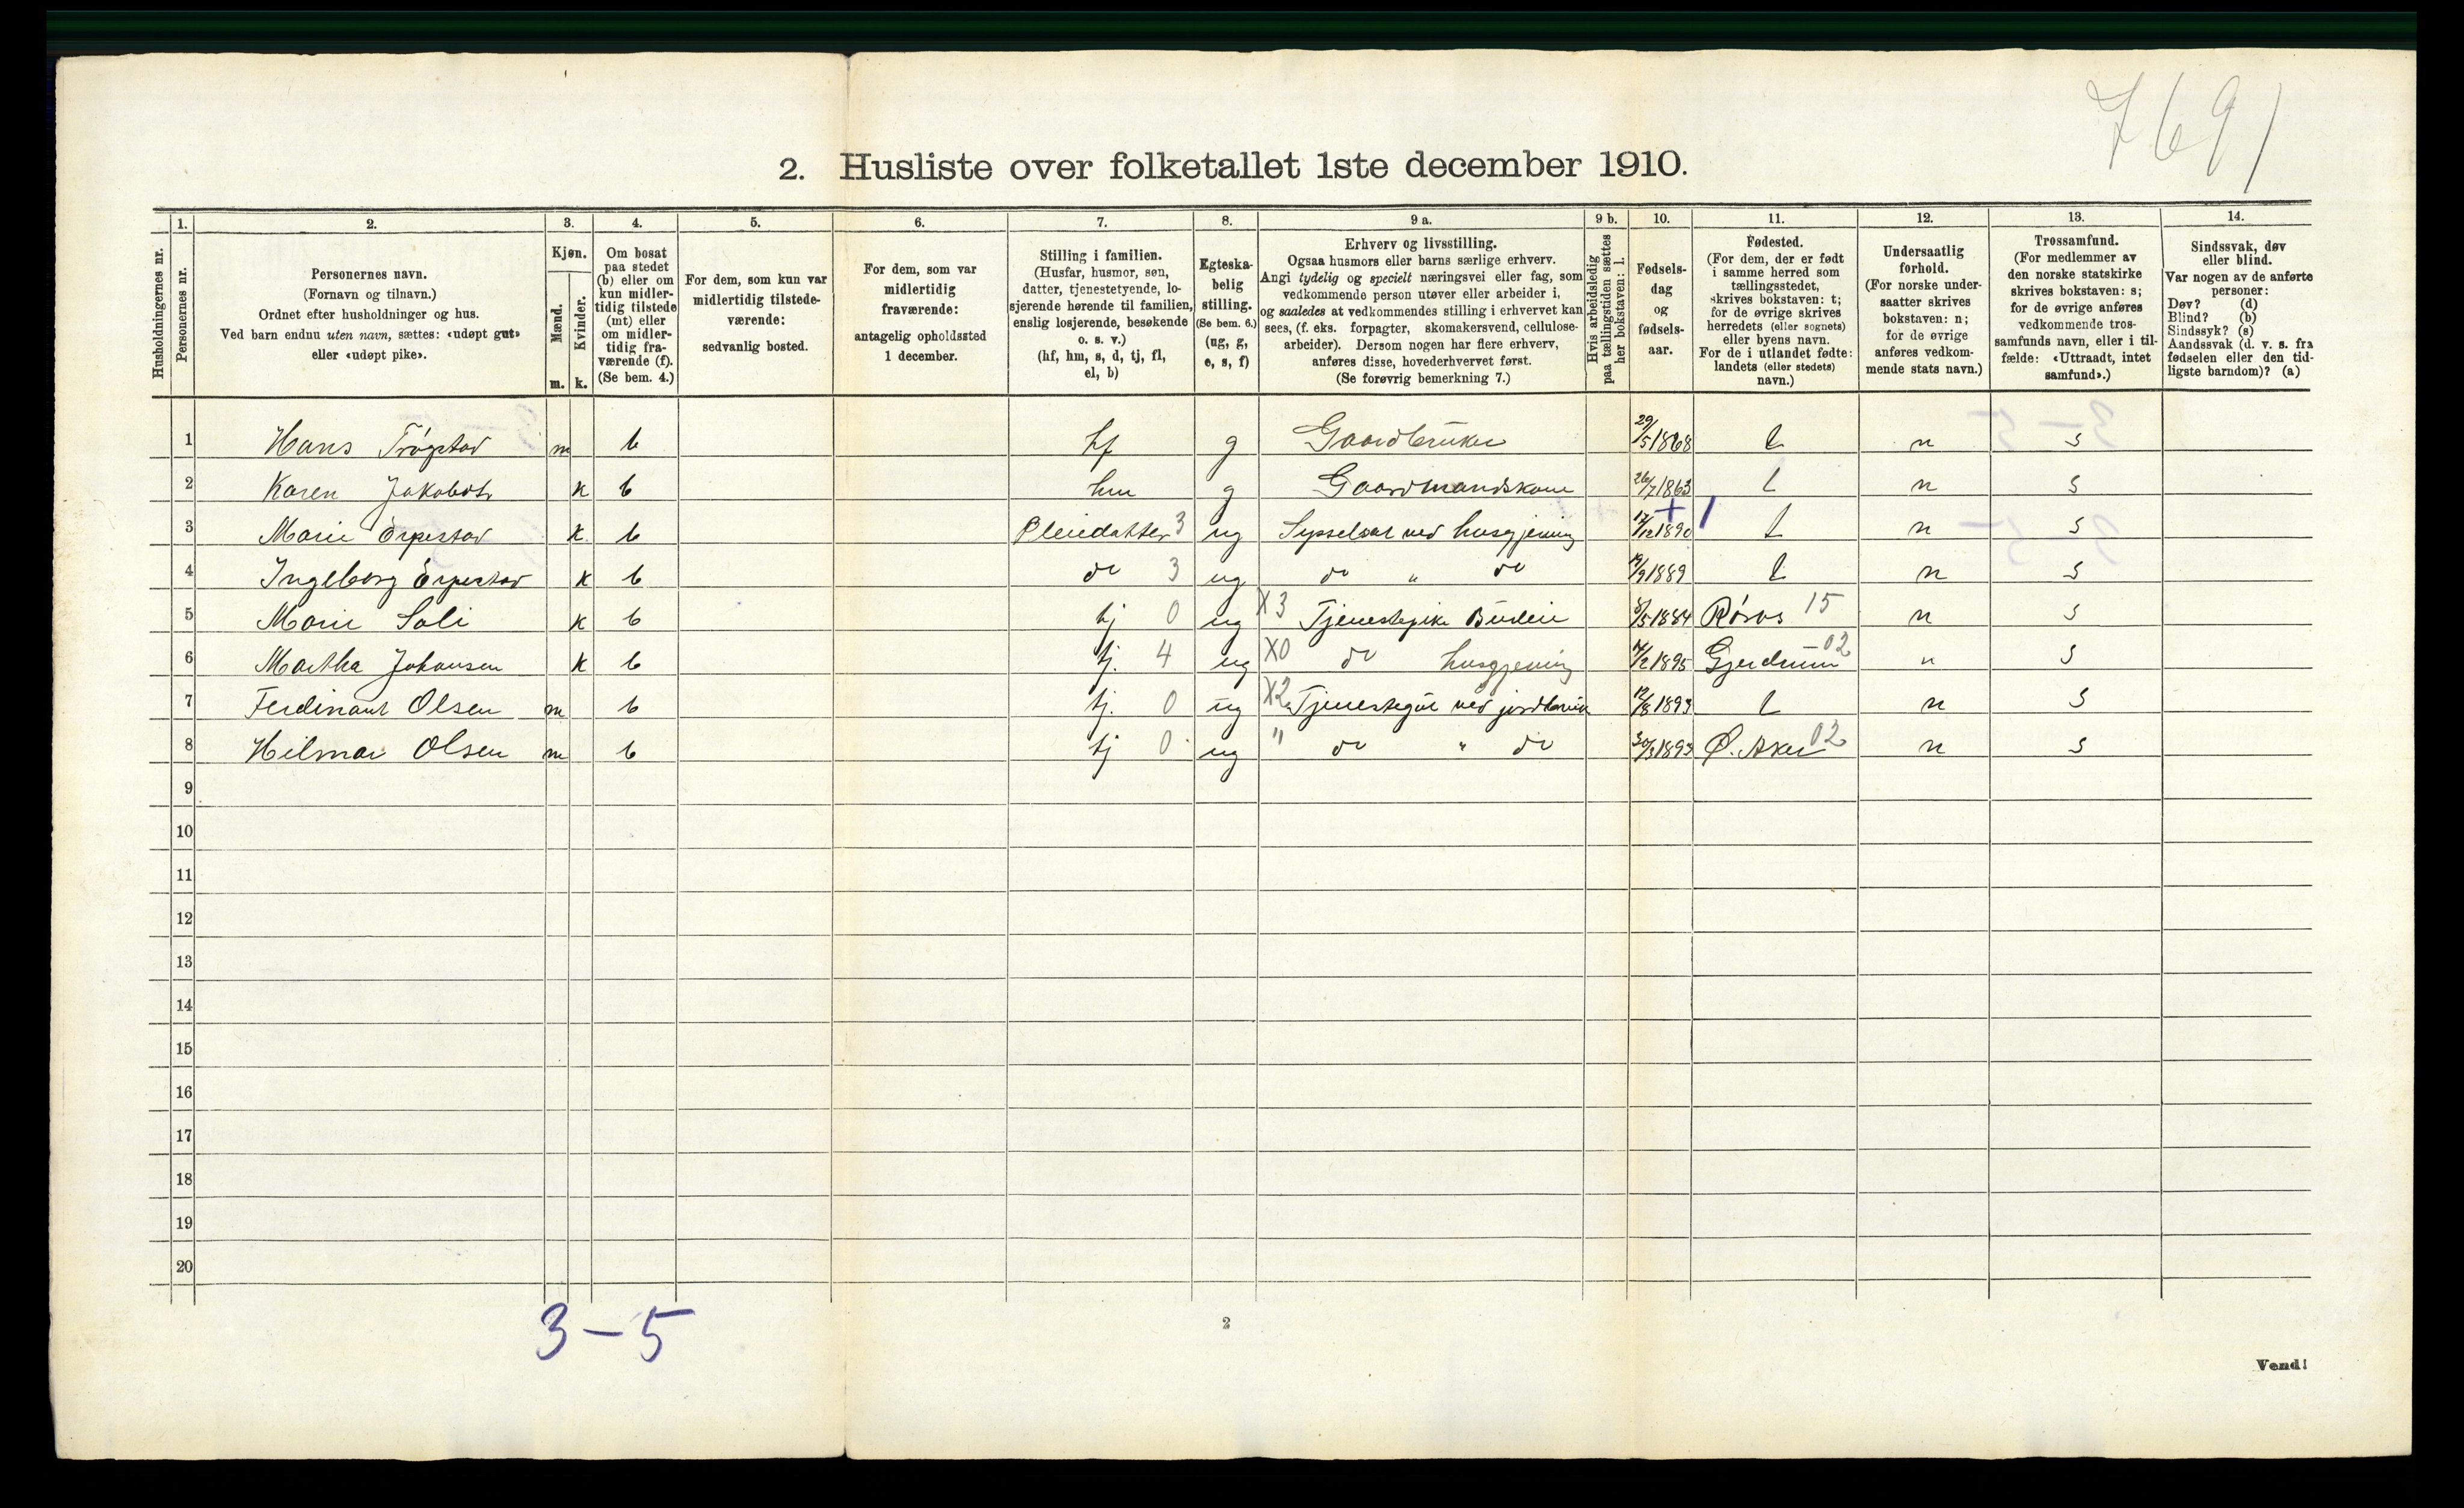 7691
2. Husliste over folketallet 1ste december 1910.
1. 2. 3. 4. 5. 6. 7. 8. 9 a. 9 b. 10. 11. 12. 13. 14.
Husholdningernes nr.
Personernes nr.
Personernes navn.
(Fornavn og tilnavn.)
Ordnet efter husholdninger og hus.
Ved barn endnu uten navn, sættes: «udøpt gut»
eller «udøpt pike».
Kjøn.
Mænd.
Kvinder.
m. k.
Om bosat
paa stedet
(b) eller om
kun midler-
tidig tilstede
(mt) eller
om midler-
tidig fra-
værende (f).
(Se bem. 4.)
For dem, som kun var
midlertidig tilstede-
værende:
sedvanlig bosted.
For dem, som var
midlertidig
fraværende:
antagelig opholdssted
1 december.
Stilling i familien.
(Husfar, husmor, søn,
datter, tjenestetyende, lo-
sjerende hørende til familien,
enslig losjerende, besøkende
o. s. v.)
(hf, hm, s, d, tj, fl,
el, b)
Egteska-
belig
stilling.
(Se bem. 6.)
(ug, g,
e, s, f)
Erhverv og livsstilling.
Ogsaa husmors eller barns særlige erhverv.
Angi tydelig og specielt næringsvei eller fag, som
vedkommende person utøver eller arbeider i,
og saaledes at vedkommendes stilling i erhvervet kan
sees, (f. eks. forpagter, skomakersvend, cellulose-
arbeider). Dersom nogen har flere erhverv,
anføres disse, hovederhvervet først.
(Se forøvrig bemerkning 7.)
Hvis arbeidsledig
paa tællingstiden sættes
her bokstaven: l.
Fødsels-
dag
og
fødsels-
aar.
Fødested.
(For dem, der er født
i samme herred som
tællingsstedet,
skrives bokstaven: t;
for de øvrige skrives
herredets (eller sognets)
eller byens navn.
For de i utlandet fødte:
landets (eller stedets)
navn.)
Undersaatlig
forhold.
(For norske under-
saatter skrives
bokstaven: n;
for de øvrige
anføres vedkom-
mende stats navn.)
Trossamfund.
(For medlemmer av
den norske statskirke
skrives bokstaven: s;
for de øvrige anføres
vedkommende tros-
samfunds navn, eller i til-
fælde: «Uttraadt, intet
samfund».)
Sindssvak, døv
eller blind.
Var nogen av de anførte
personer:
Døv? (d)
Blind? (b)
Sindssyk? (s)
Aandssvak (d. v. s. fra
fødselen eller den tid-
ligste barndom)? (a)
1 Hans Trøgstad m b hf g Gaardbruker 29/5 1868 t n s
2 Karen Jakobdtr k b hm g Gaardmandskone 26/7 1863 t n s
3 Marie k b Pleiedatter 3 ug Sysselsat ved husgjerning 17/12 1890 t n s
4 Ingeborg k b do 3 ug do " do 19/9 1889 t n s
5 Marie Soli k b tj 0 ug X3 Tjenestepike Budeie 8/5 1884 Røros 15 n s
6 Martha Johansen k b tj. 4 ug X0 do husgjerning 14/2 1895 Gjerdrum 02 n s
7 Ferdinant Olsen m b tj. 0 ug X2 Tjenestegut ved jordbruk 12/8 1893 t n s
8 Hilmar Olsen m b tj 0 ug " do " do 30/3 1893 Ø. Aker 02 n s
9
10
11
12
13
14
15
16
17
18
19
20
3-5
2
Vend!